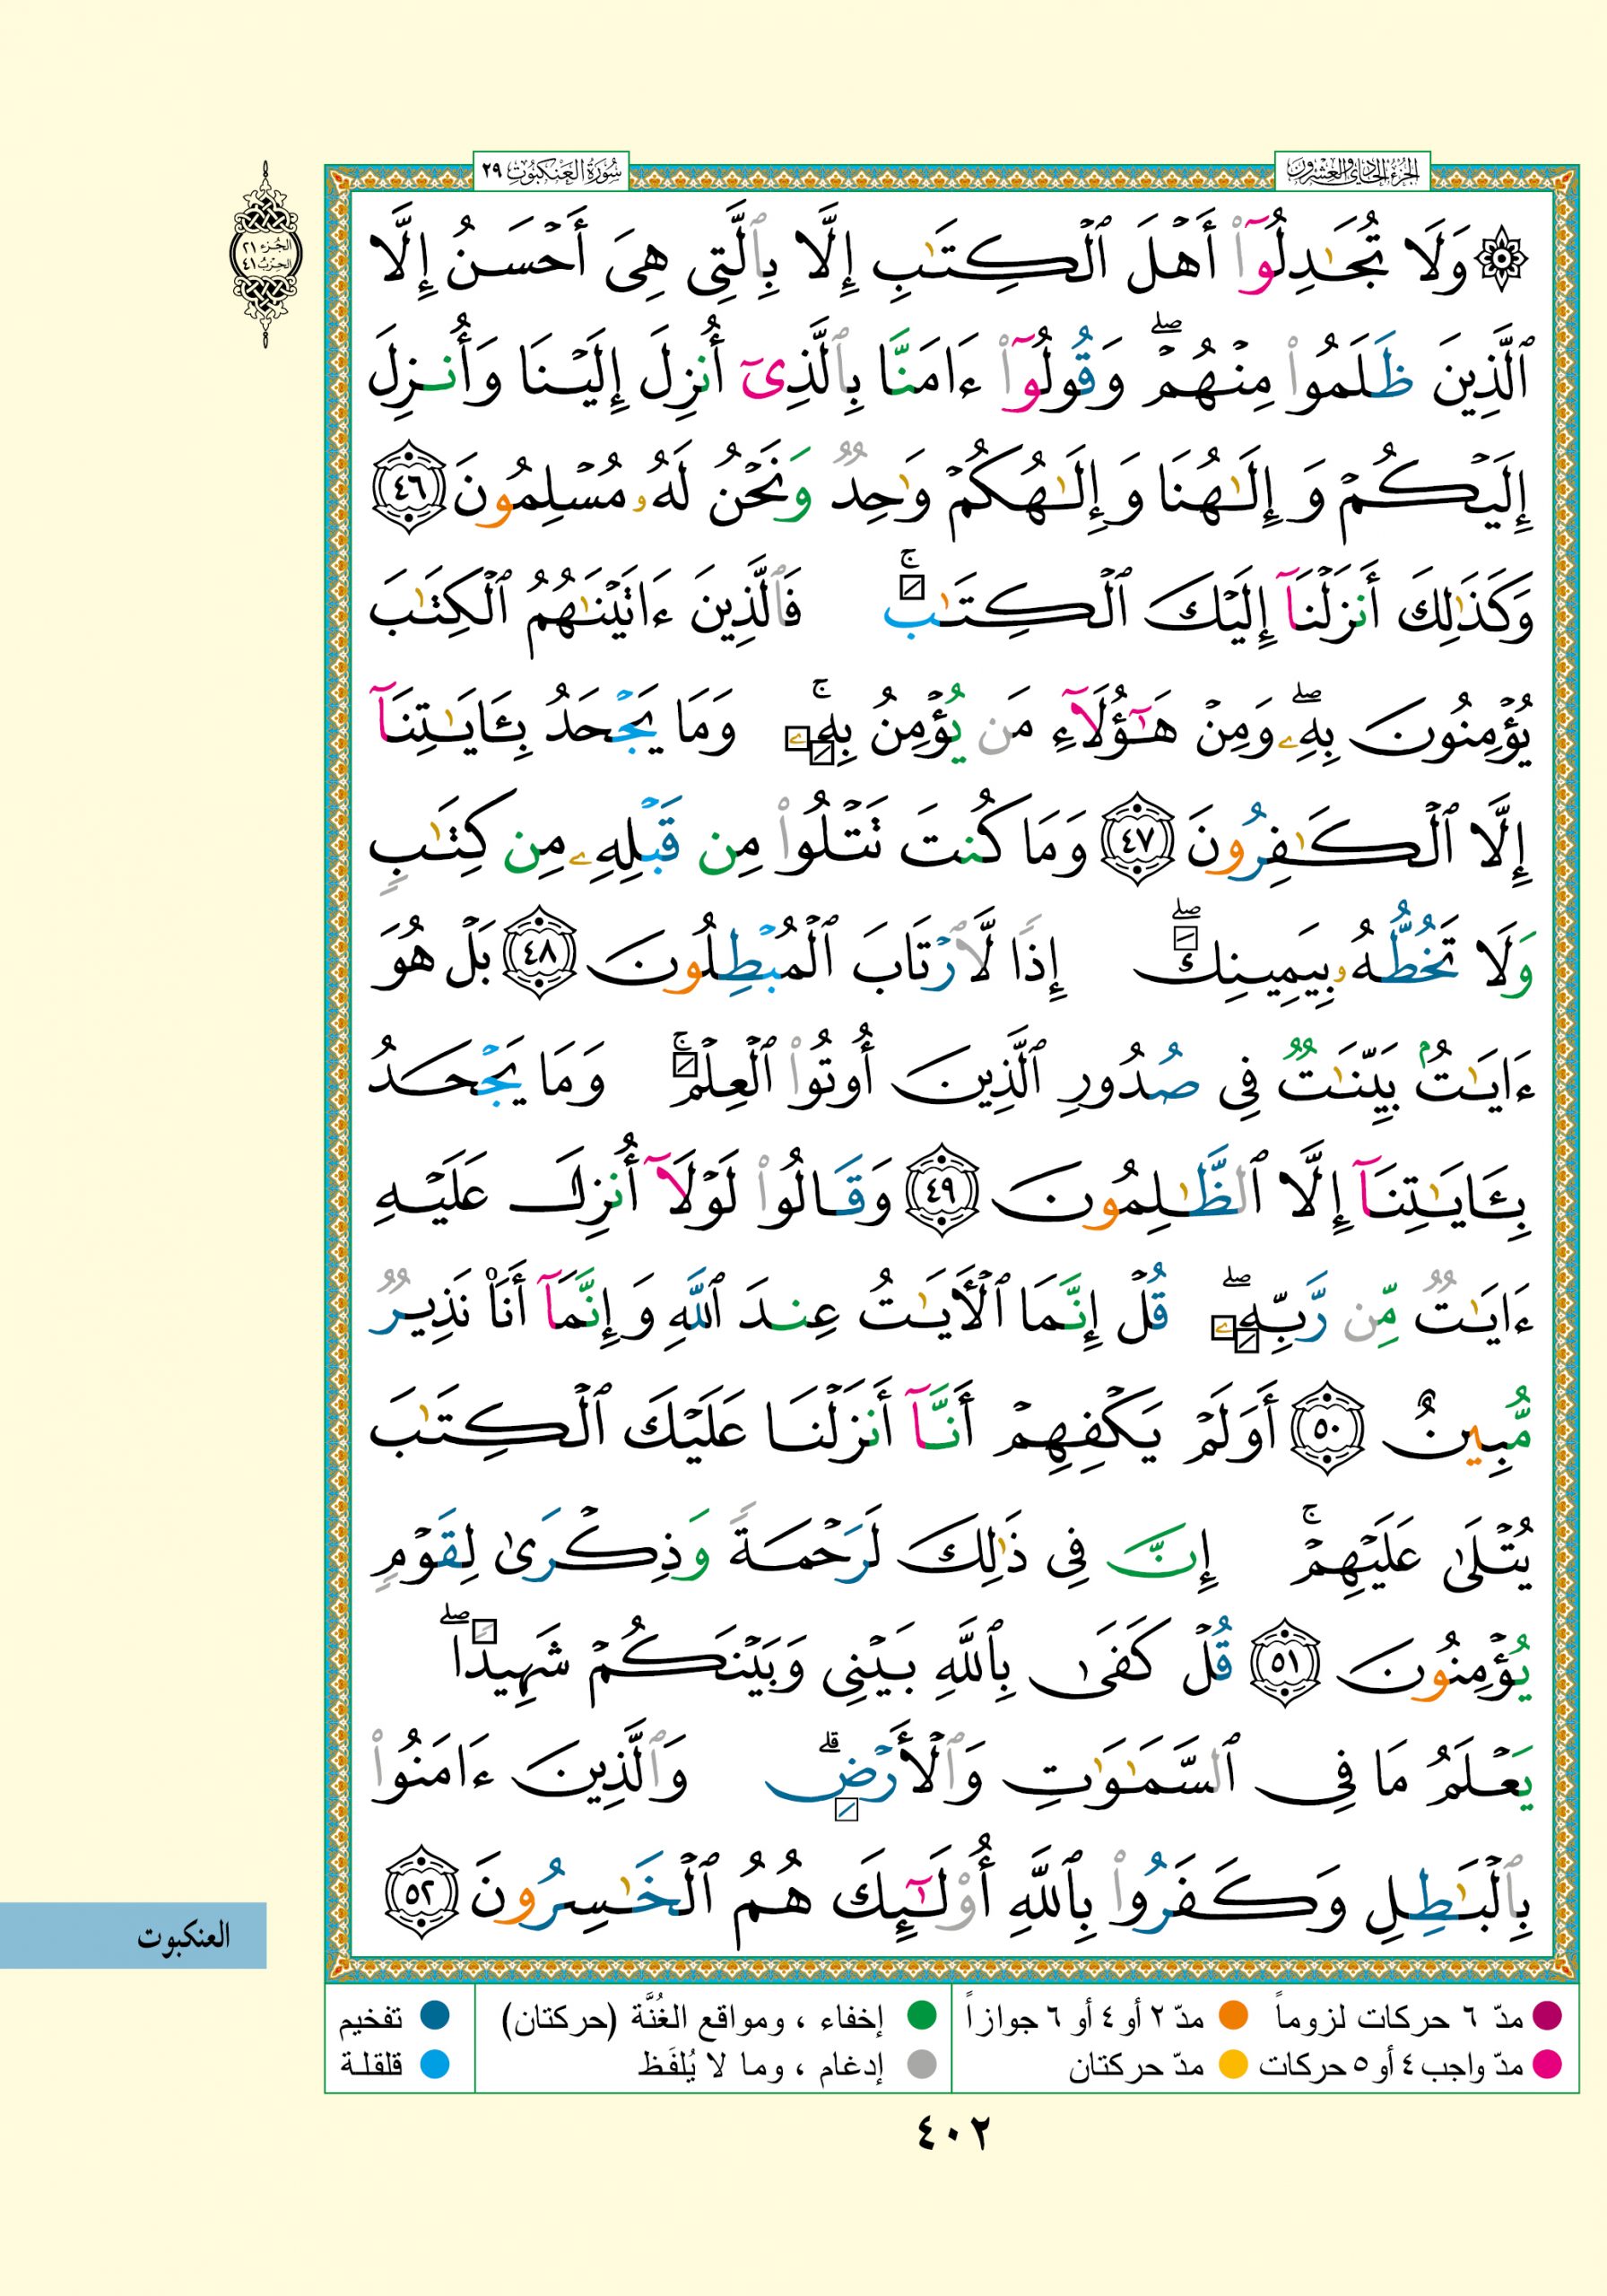 الجزء الحادي والعشرون
سُورَةُ العَنكَبُوتِ ٢٩
الجُزء ٢١
الحِزبُ ٤١
۞ وَلَا تُجَٰدِلُوٓا۟ أَهْلَ ٱلْكِتَٰبِ إِلَّا بِٱلَّتِى هِىَ أَحْسَنُ إِلَّا
ٱلَّذِينَ ظَلَمُوا۟ مِنْهُمْ ۖ وَقُولُوٓا۟ ءَامَنَّا بِٱلَّذِىٓ أُنزِلَ إِلَيْنَا وَأُنزِلَ
إِلَيْكُمْ وَإِلَٰهُنَا وَإِلَٰهُكُمْ وَٰحِدٌ وَنَحْنُ لَهُۥ مُسْلِمُونَ ٤٦
وَكَذَٰلِكَ أَنزَلْنَآ إِلَيْكَ ٱلْكِتَٰبَ ۚ فَٱلَّذِينَ ءَاتَيْنَٰهُمُ ٱلْكِتَٰبَ
يُؤْمِنُونَ بِهِۦ ۖ وَمِنْ هَٰٓؤُلَآءِ مَن يُؤْمِنُ بِهِۦ ۚ وَمَا يَجْحَدُ بِـَٔايَٰتِنَآ
إِلَّا ٱلْكَٰفِرُونَ ٤٧ وَمَا كُنتَ تَتْلُوا۟ مِن قَبْلِهِۦ مِن كِتَٰبٍ
وَلَا تَخُطُّهُۥ بِيَمِينِكَ ۖ إِذًا لَّٱرْتَابَ ٱلْمُبْطِلُونَ ٤٨ بَلْ هُوَ
ءَايَٰتٌۢ بَيِّنَٰتٌ فِى صُدُورِ ٱلَّذِينَ أُوتُوا۟ ٱلْعِلْمَ ۚ وَمَا يَجْحَدُ
بِـَٔايَٰتِنَآ إِلَّا ٱلظَّٰلِمُونَ ٤٩ وَقَالُوا۟ لَوْلَآ أُنزِلَ عَلَيْهِ
ءَايَٰتٌ مِّن رَّبِّهِۦ ۖ قُلْ إِنَّمَا ٱلْأَيَٰتُ عِندَ ٱللَّهِ وَإِنَّمَآ أَنَا۠ نَذِيرٌ
مُّبِينٌ ٥٠ أَوَلَمْ يَكْفِهِمْ أَنَّآ أَنزَلْنَا عَلَيْكَ ٱلْكِتَٰبَ
يُتْلَىٰ عَلَيْهِمْ ۚ إِنَّ فِى ذَٰلِكَ لَرَحْمَةً وَذِكْرَىٰ لِقَوْمٍ
يُؤْمِنُونَ ٥١ قُلْ كَفَىٰ بِٱللَّهِ بَيْنِى وَبَيْنَكُمْ شَهِيدًا ۖ
يَعْلَمُ مَا فِى ٱلسَّمَٰوَٰتِ وَٱلْأَرْضِ ۗ وَٱلَّذِينَ ءَامَنُوا۟
بِٱلْبَٰطِلِ وَكَفَرُوا۟ بِٱللَّهِ أُو۟لَٰٓئِكَ هُمُ ٱلْخَٰسِرُونَ ٥٢
العنكبوت
مدّ ٦ حركات لزوماً مدّ ٢ أو ٤ أو ٦ جوازاً إخفاء ، ومواقع الغُنَّة (حركتان) تفخيم
مدّ واجب ٤ أو ٥ حركات مدّ حركتان إدغام ، وما لا يُلفَظ قلقلة
٤٠٢